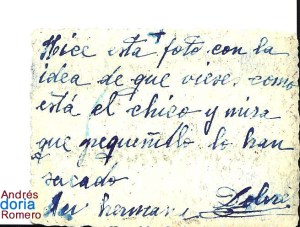 Hice esta foto con la
idea de que viese como
está el chico y mira
que pequeñillo lo han
sacado
hermana
Andrés
doria
Romero